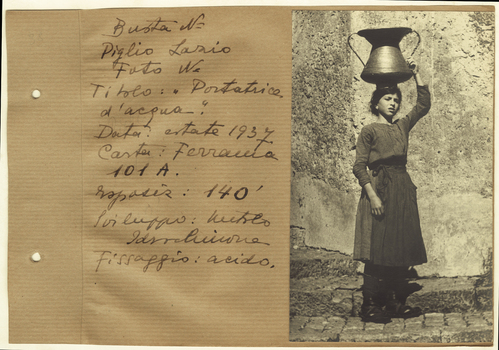 Busta Nº
Piglio Lazio
Foto Nº
Titolo: "Portatrice
d'acqua".
Data: estate 1937
Carta: Ferrania
101 A.
Esposiz: 140'
Sviluppo: Metolo
Idrochinone
Fissaggio: acido.